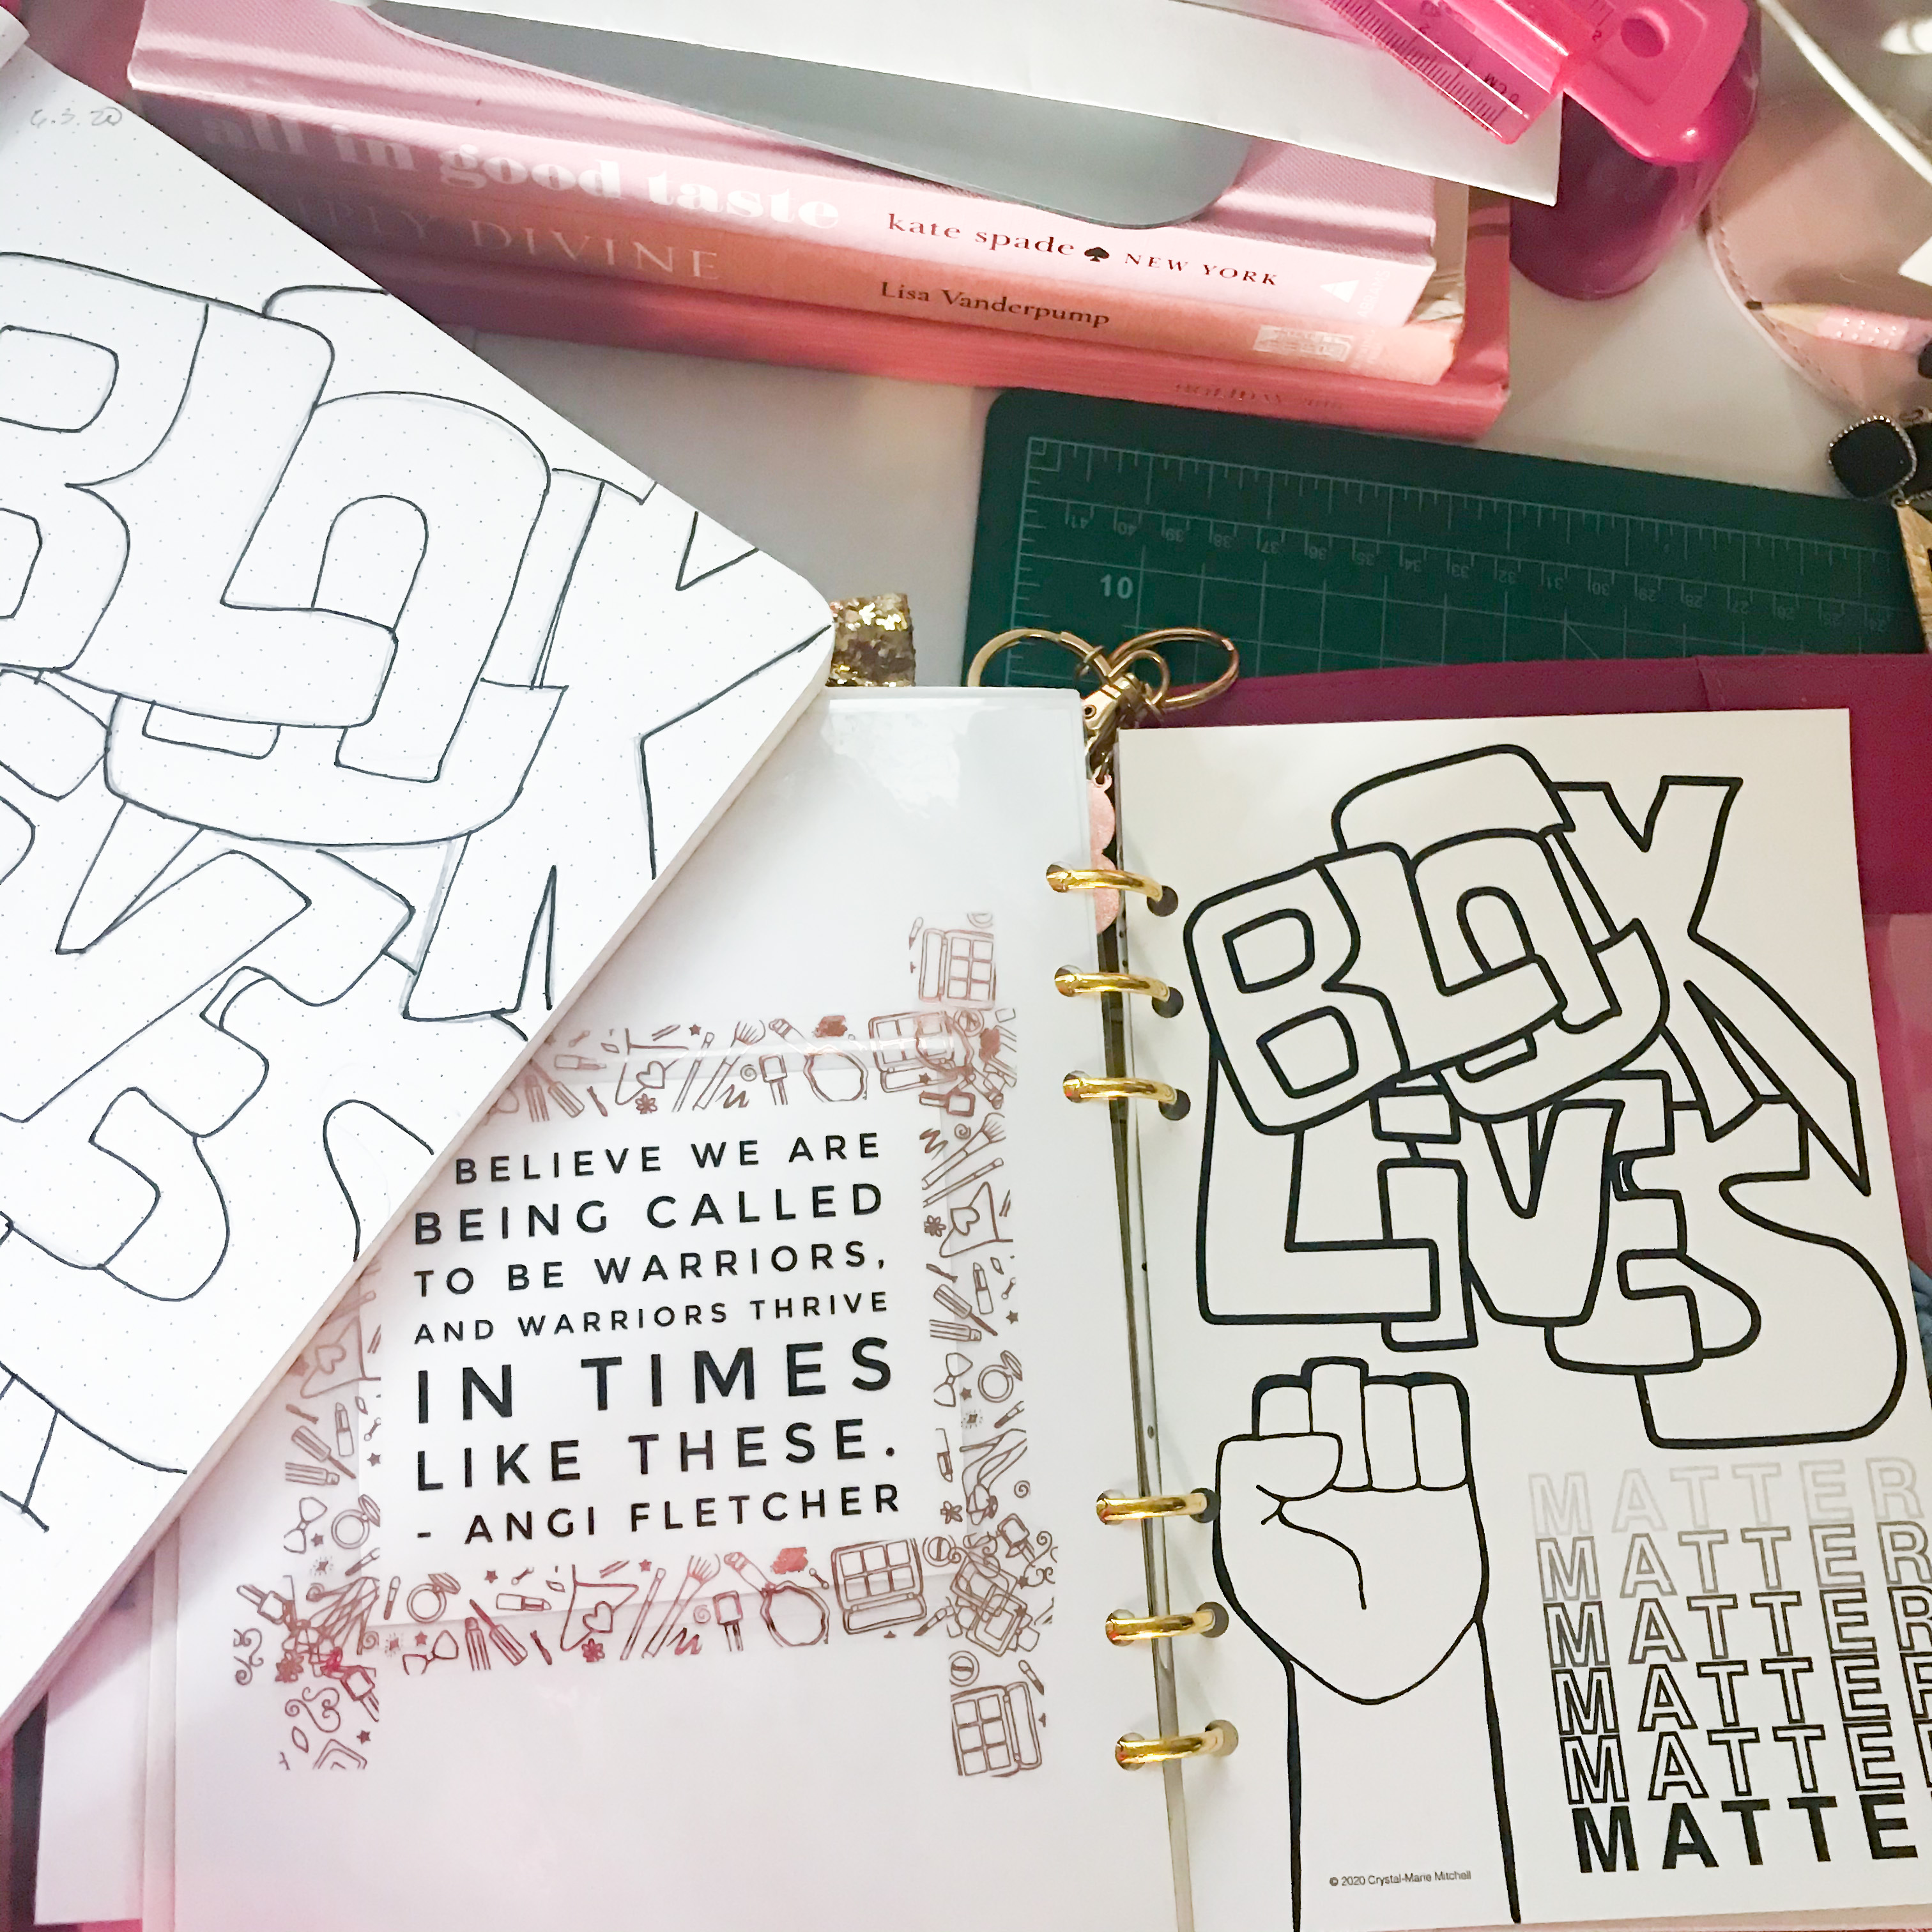 6.3.20
all in good taste
kate spade NEW YORK
DIVINE
Lisa Vanderpump
HOLIDAY
CM
41 40 39 38 37 36 35 34 33 32 31 30 29 28 27 26 25 24
10
BLACK
BELIEVE WE ARE
BEING CALLED
TO BE WARRIORS,
AND WARRIORS THRIVE
IN TIMES
LIKE THESE.
- ANGI FLETCHER
BLACK
LIVES
MATTER
MATTER
MATTER
MATTER
MATTER
MATTE
© 2020 Crystal-Marie Mitchell